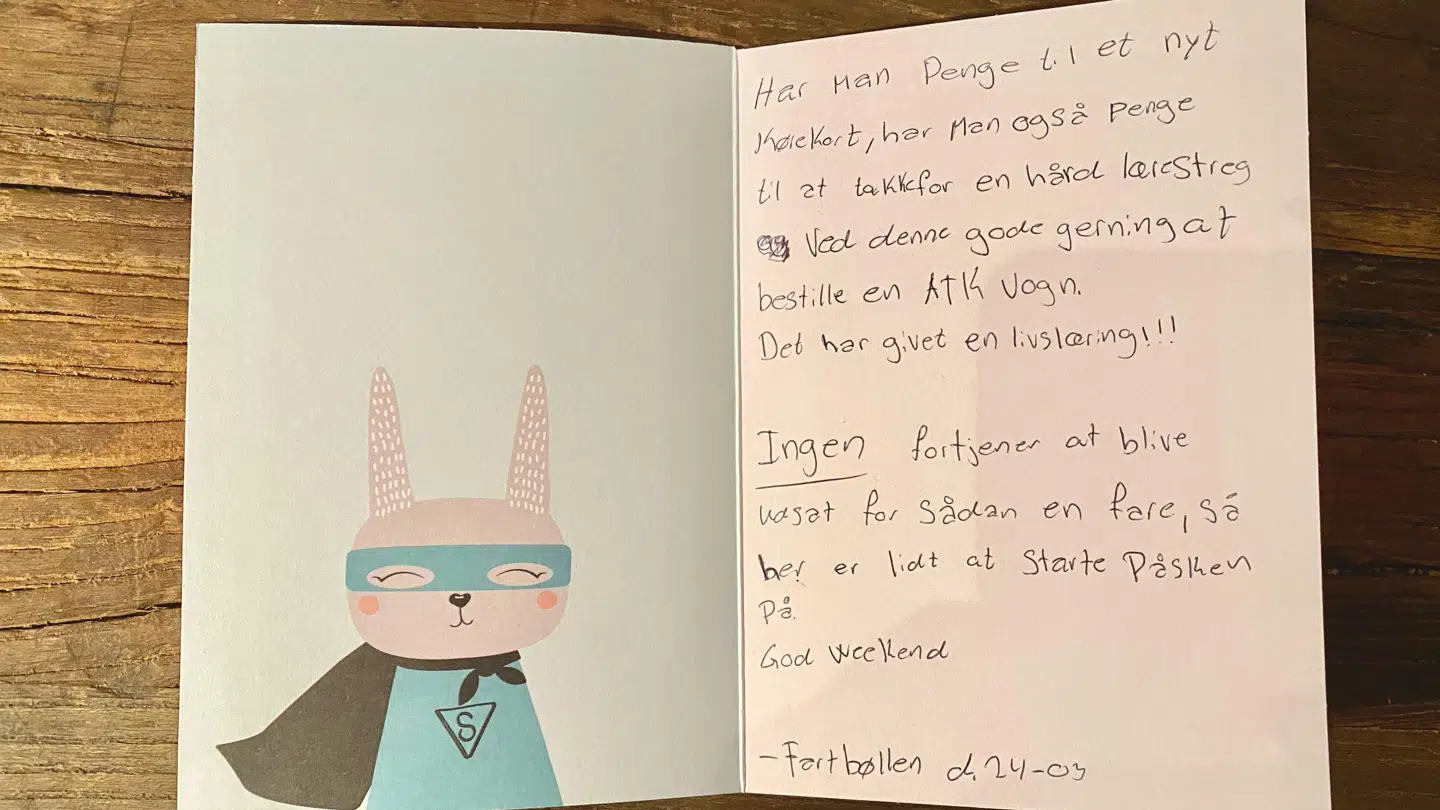 Har man Penge til et nyt
Kørekort, har man også penge
til at takke for en hård lærestreg
Ved denne gode gerning at
bestille en ATK Vogn.
Det har givet en livslæring!!!
Ingen fortjener at blive
udsat for sådan en fare, så
her er lidt at starte Påsken
På.
God weekend
-Fartbøllen d. 24-03
S